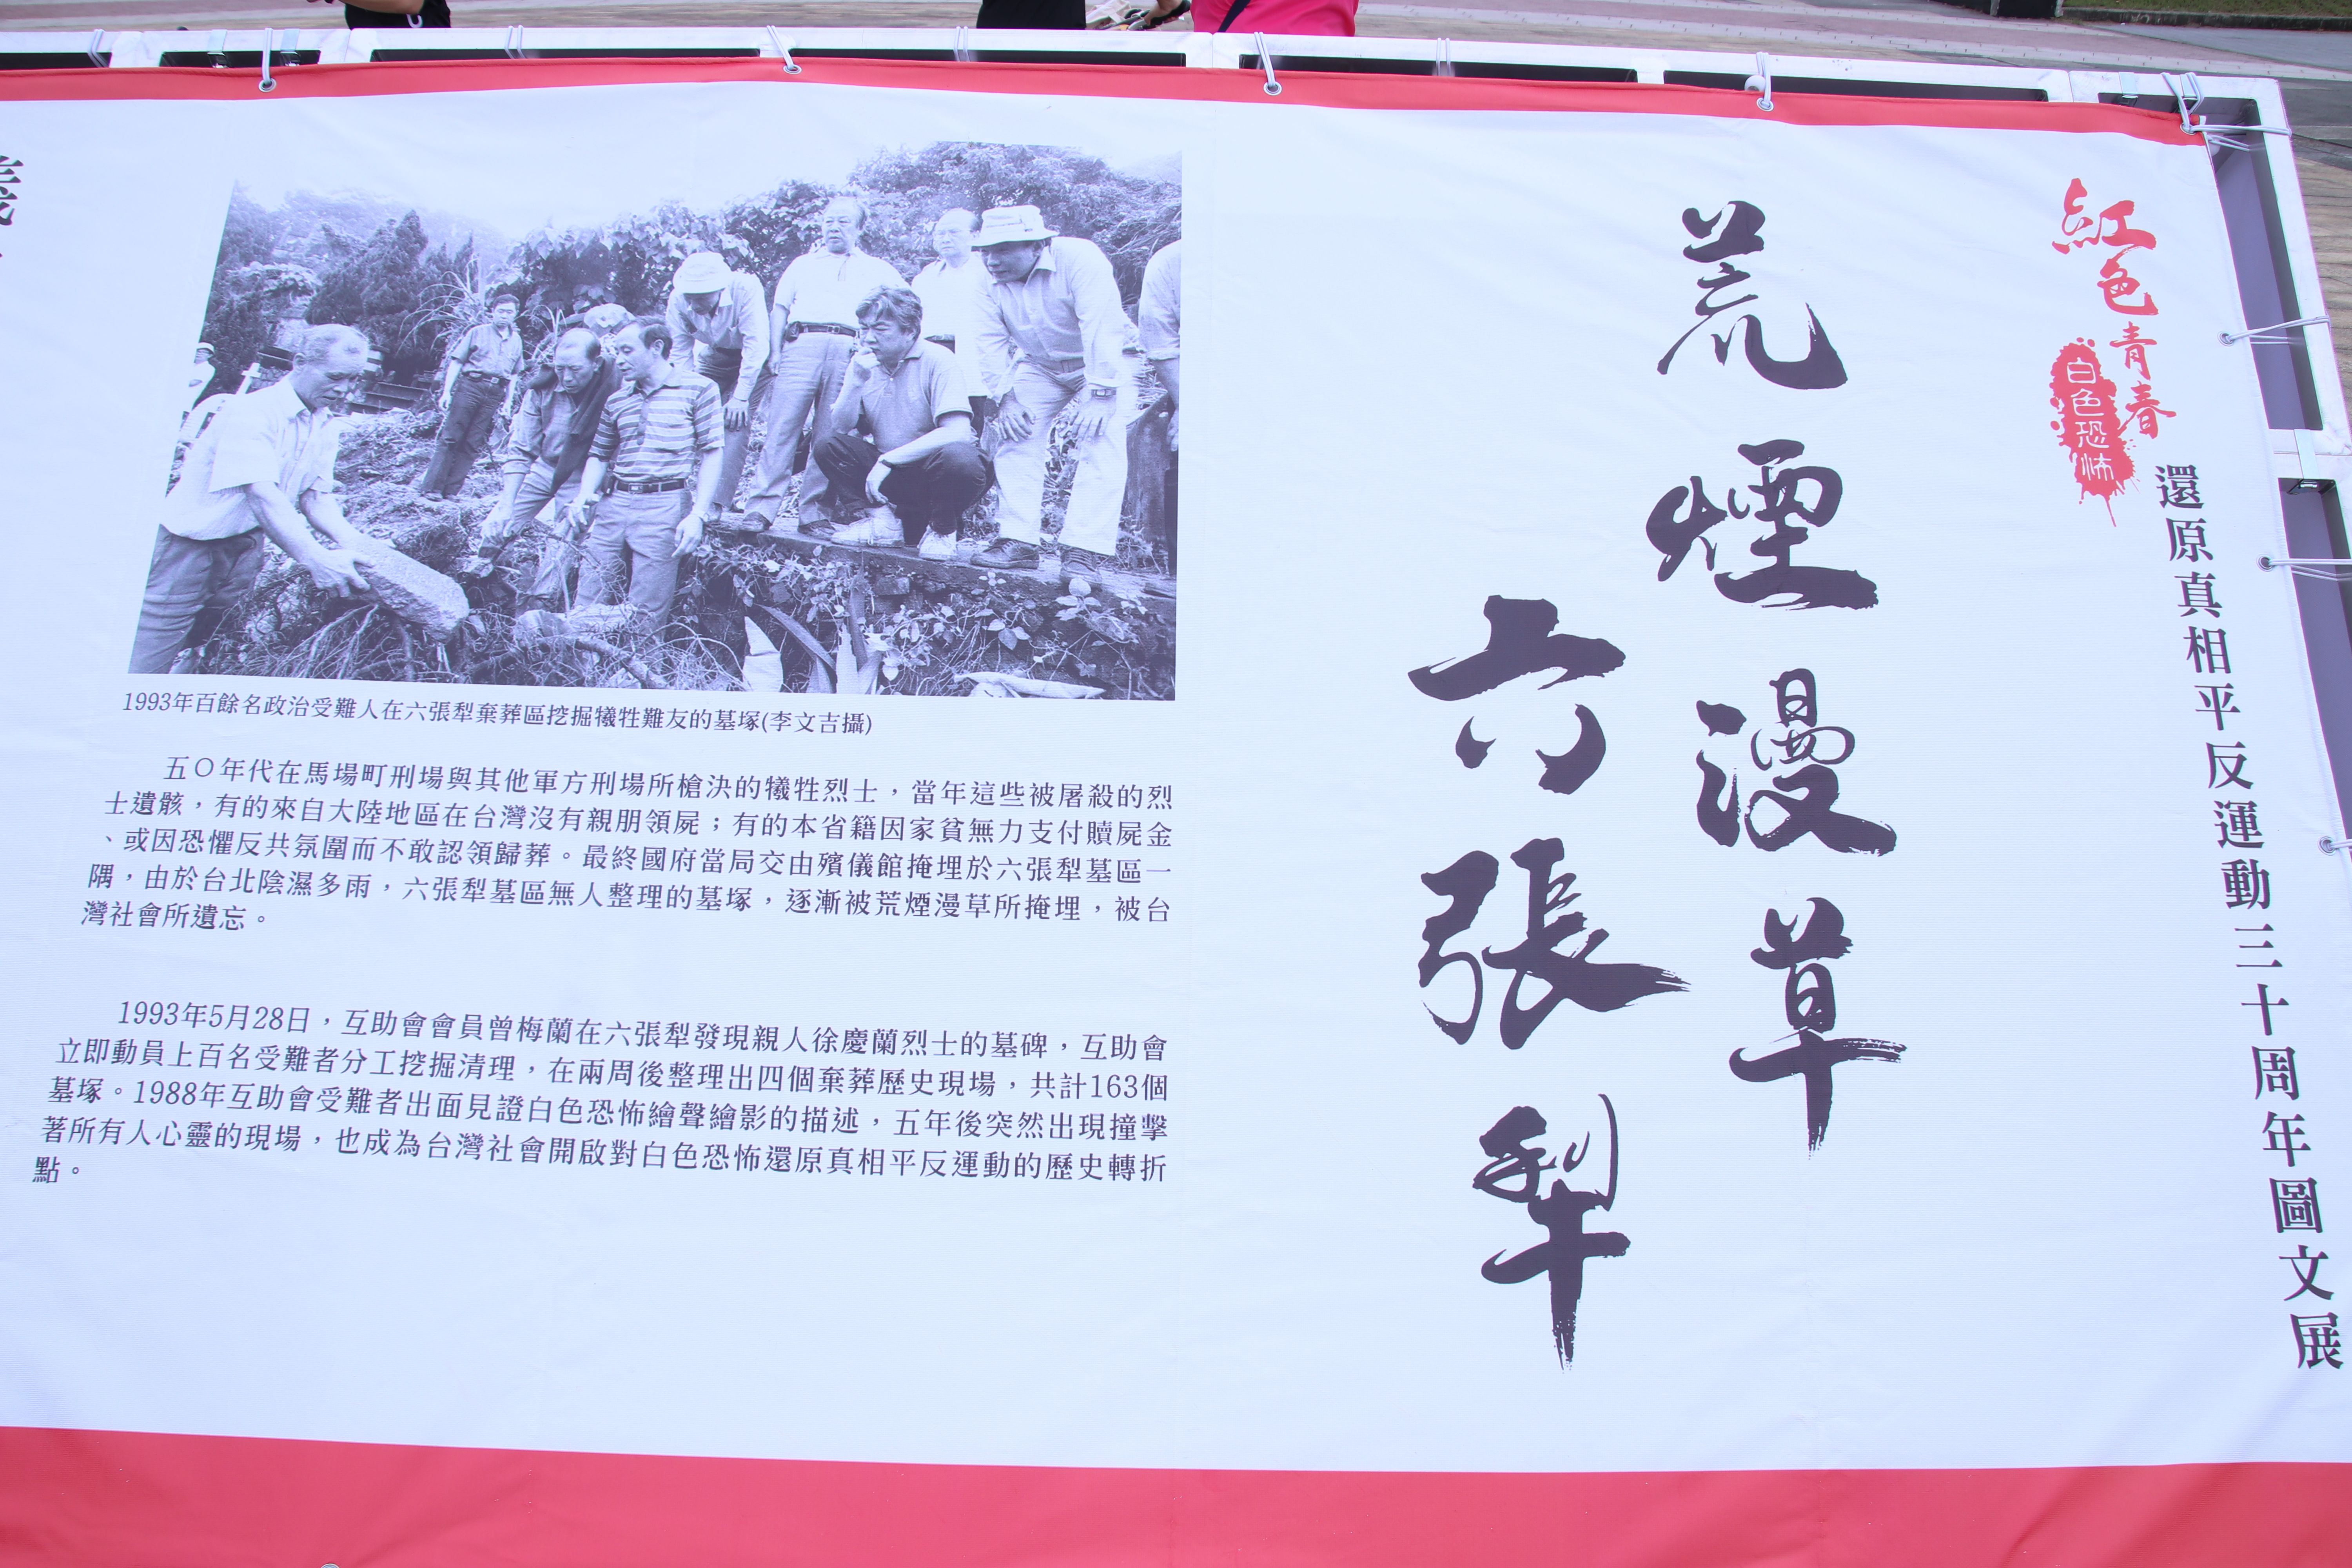 紅色青春
白色恐怖
還原真相平反運動三十周年圖文展
荒煙漫草
六張犁
1993年百餘名政治受難人在六張犁棄葬區挖掘犧牲難友的墓塚(李文吉攝)
五〇年代在馬場町刑場與其他軍方刑場所槍決的犧牲烈士，當年這些被屠殺的烈
士遺骸，有的來自大陸地區在台灣沒有親朋領屍；有的本省籍因家貧無力支付贖屍金
、或因恐懼反共氛圍而不敢認領歸葬。最終國府當局交由殯儀館掩埋於六張犁墓區一
隅，由於台北陰濕多雨，六張犁墓區無人整理的墓塚，逐漸被荒煙漫草所掩埋，被台
灣社會所遺忘。
1993年5月28日，互助會會員曾梅蘭在六張犁發現親人徐慶蘭烈士的墓碑，互助會
立即動員上百名受難者分工挖掘清理，在兩周後整理出四個棄葬歷史現場，共計163個
墓塚。1988年互助會受難者出面見證白色恐怖繪聲繪影的描述，五年後突然出現撞擊
著所有人心靈的現場，也成為台灣社會開啟對白色恐怖還原真相平反運動的歷史轉折
點。